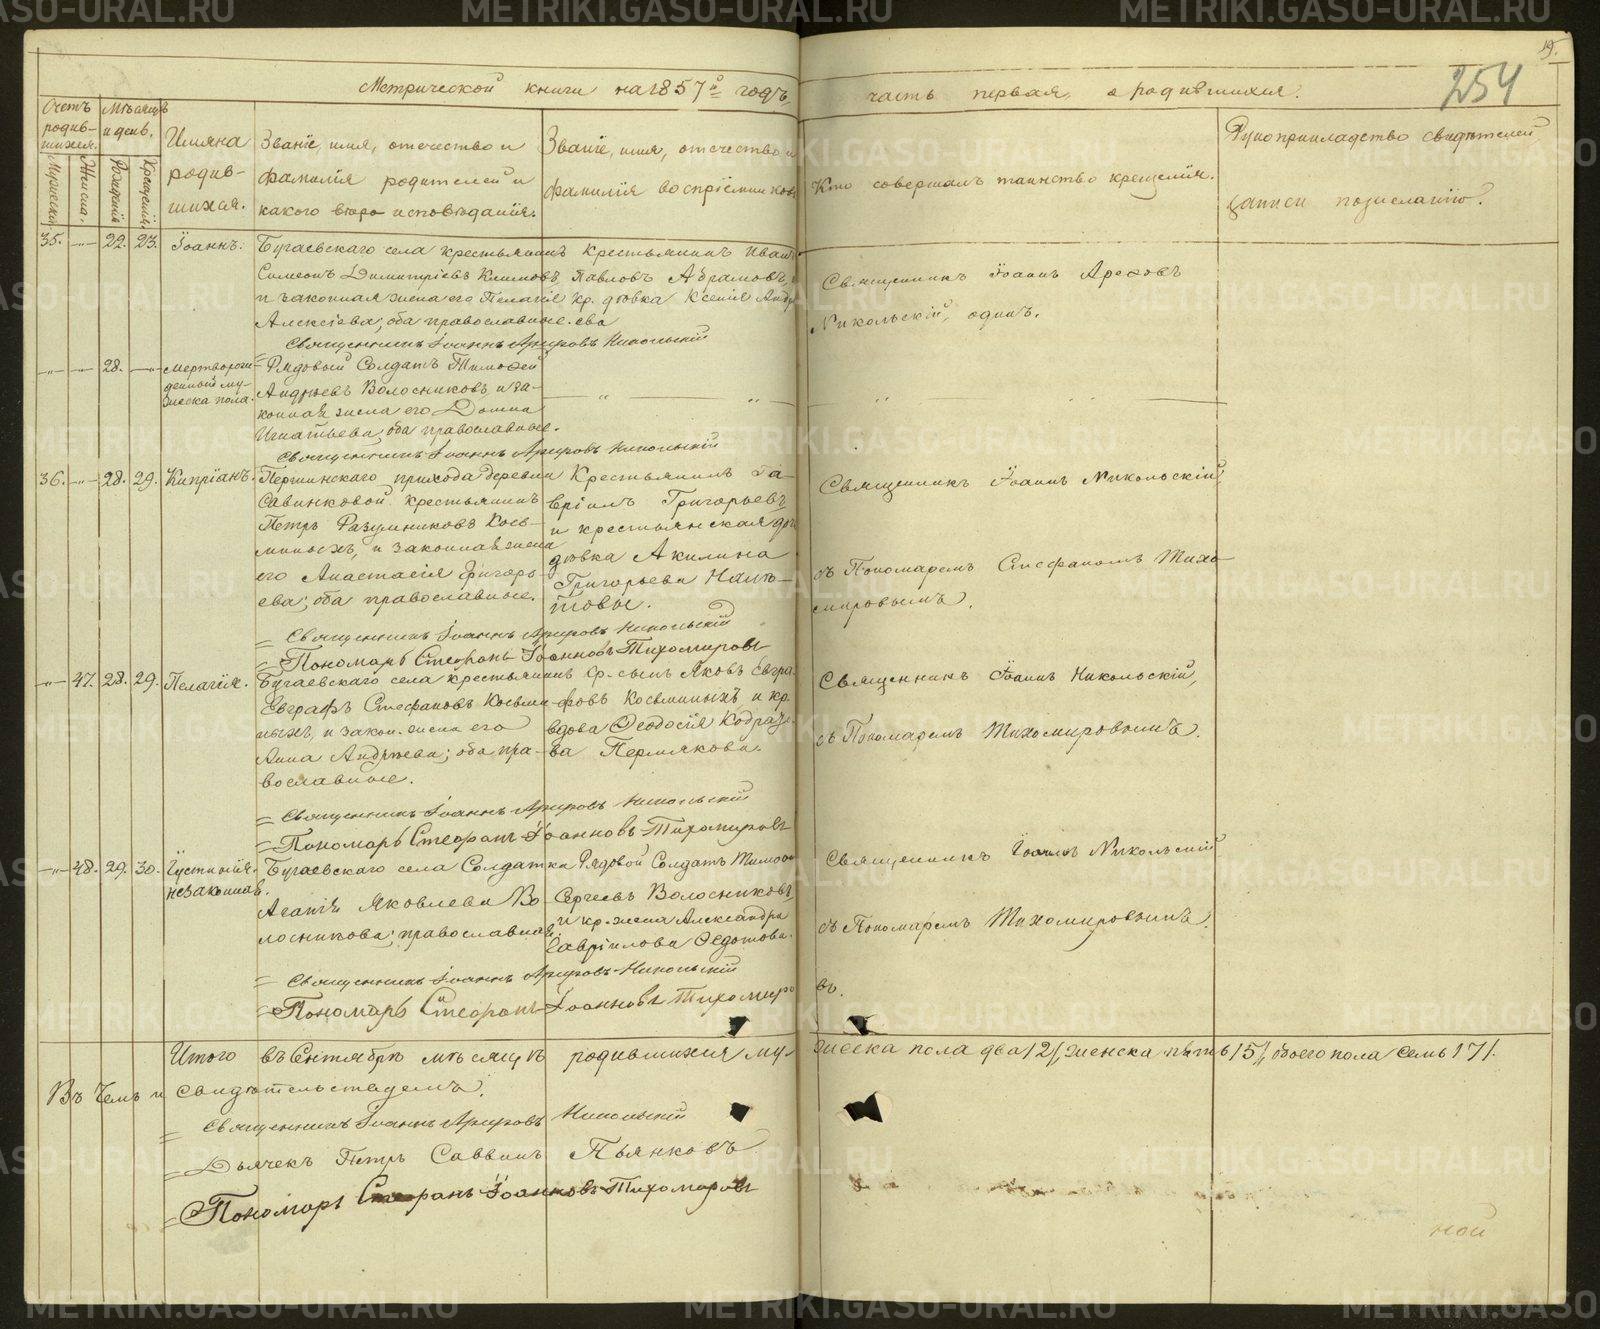 Метрической книги на 1857й годъ, часть первая, о родившихся.
19.
254
Счетъ родив-шихся.
Мѣсяцъ и день.
Мужеска
Женска.
Рожденія
Крещенія
Имяна родив-шихся.
Званіе, имя, отечество и
фамилія родителей и
какого вѣро исповѣданія.
Званіе, имя, отечество и
фамилія воспріемниковъ
Кто совершалъ таинство крещенія.
Рукоприкладство свидѣтелей
записи по желанію.
35. -„- 22. 23. Іоаннъ.
Бугаевскаго села крестьянинъ
Симеонъ Димитріевъ Климовъ,
и законная жена его Пелагія
Алексіева; оба православные.
Крестьянинъ Иванъ
Павловъ Абрамовъ, и
кр. дѣвка Ксенія Андр
ева
Священникъ Іоаннъ Арефовъ
Никольскій, одинъ.
Священникъ Іоаннъ Арефовъ Никольскій
-„- -„- 28. -„- Мертворож
денный му-
жеска пола.
Рядовый Солдатъ Тимофей
Андреевъ Волосниковъ и за-
конная жена его Домна
Игнатьева, оба православные.
Священникъ Іоаннъ Арефовъ Никольскій
36. -„- 28. 29. Кипріанъ.
Першинскаго прихода деревни
Савинковой крестьянинъ
Петръ Разумниковъ Кось-
миныхъ, и законная жена
его Анастасія Григорь-
ева; оба православные.
Крестьянинъ Га-
вріилъ Григорьевъ
и крестьянская доч
дѣвка Акилина
Григорьева
Священникъ Іоаннъ Никольскій
съ Пономаремъ Стефаномъ Тихо-
мировымъ.
Священникъ Іоаннъ Арефовъ Никольскій
Пономарь Стефанъ Іоанновъ Тихомировъ
-„- 47. 28. 29. Пелагія.
Бугаевскаго села крестьянинъ
Евграфъ Стефановъ Косьми-
ныхъ, и закон. жена его
Анна Андрѣева; оба пра-
вославные.
Кр. сынъ Яковъ Евгра-
фовъ Косьминыхъ и кр.
вдова Феодосія Кодрать-
ва Пермякова.
Священникъ Іоаннъ Никольскій,
съ Пономаремъ Тихомировымъ.
Священникъ Іоаннъ Арефовъ Никольскій
Пономарь Стефанъ Іоанновъ Тихомировъ
-„- 48. 29. 30. Іустинія.
незаконная.
Бугаевскаго села Солдатка
Агапія Яковлева Во-
лосникова; православная.
Рядовой Солдатъ Тимофе
Сергеевъ Волосниковъ,
и кр. жена Александра
Гавріилова Федотова.
Священникъ Іоаннъ Никольскій
съ Пономаремъ Тихомировымъ.
Священникъ Іоаннъ Арефовъ Никольскій
Пономарь Стефанъ Іоанновъ Тихомиро въ.
Итого въ Сентябрѣ мѣсяцѣ родившихся му- жеска пола два /2/, женска пять /5/, обоего пола семь /7/.
Въ чемъ и свидѣтельствуемъ.
Священникъ Іоаннъ Арефовъ Никольскій
Дьячекъ Петръ Саввинъ Пьянковъ
Пономарь Стефанъ Іоанновъ Тихомировъ
METRIKI.GASO-URAL.RU